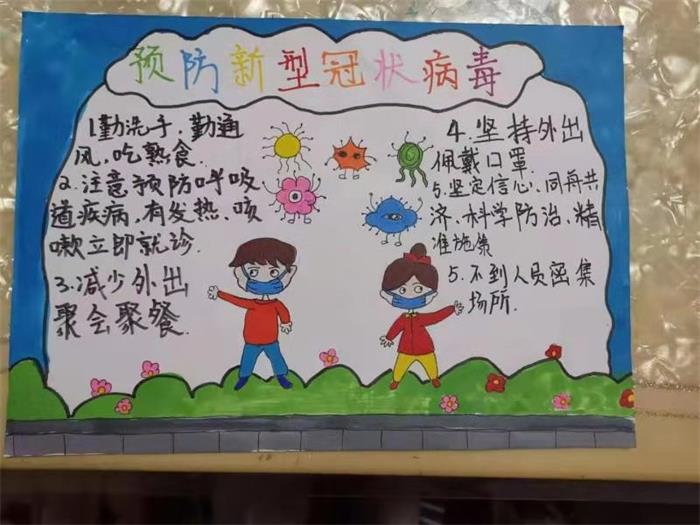 预防新型冠状病毒
1.勤洗手、勤通
风,吃熟食.
2.注意预防呼吸
道疾病,有发热、咳
嗽立即就诊.
3.减少外出
聚会聚餐.
4.坚持外出
佩戴口罩.
5.坚定信心、同舟共
济、科学防治、精
准施策
5.不到人员密集
场所.